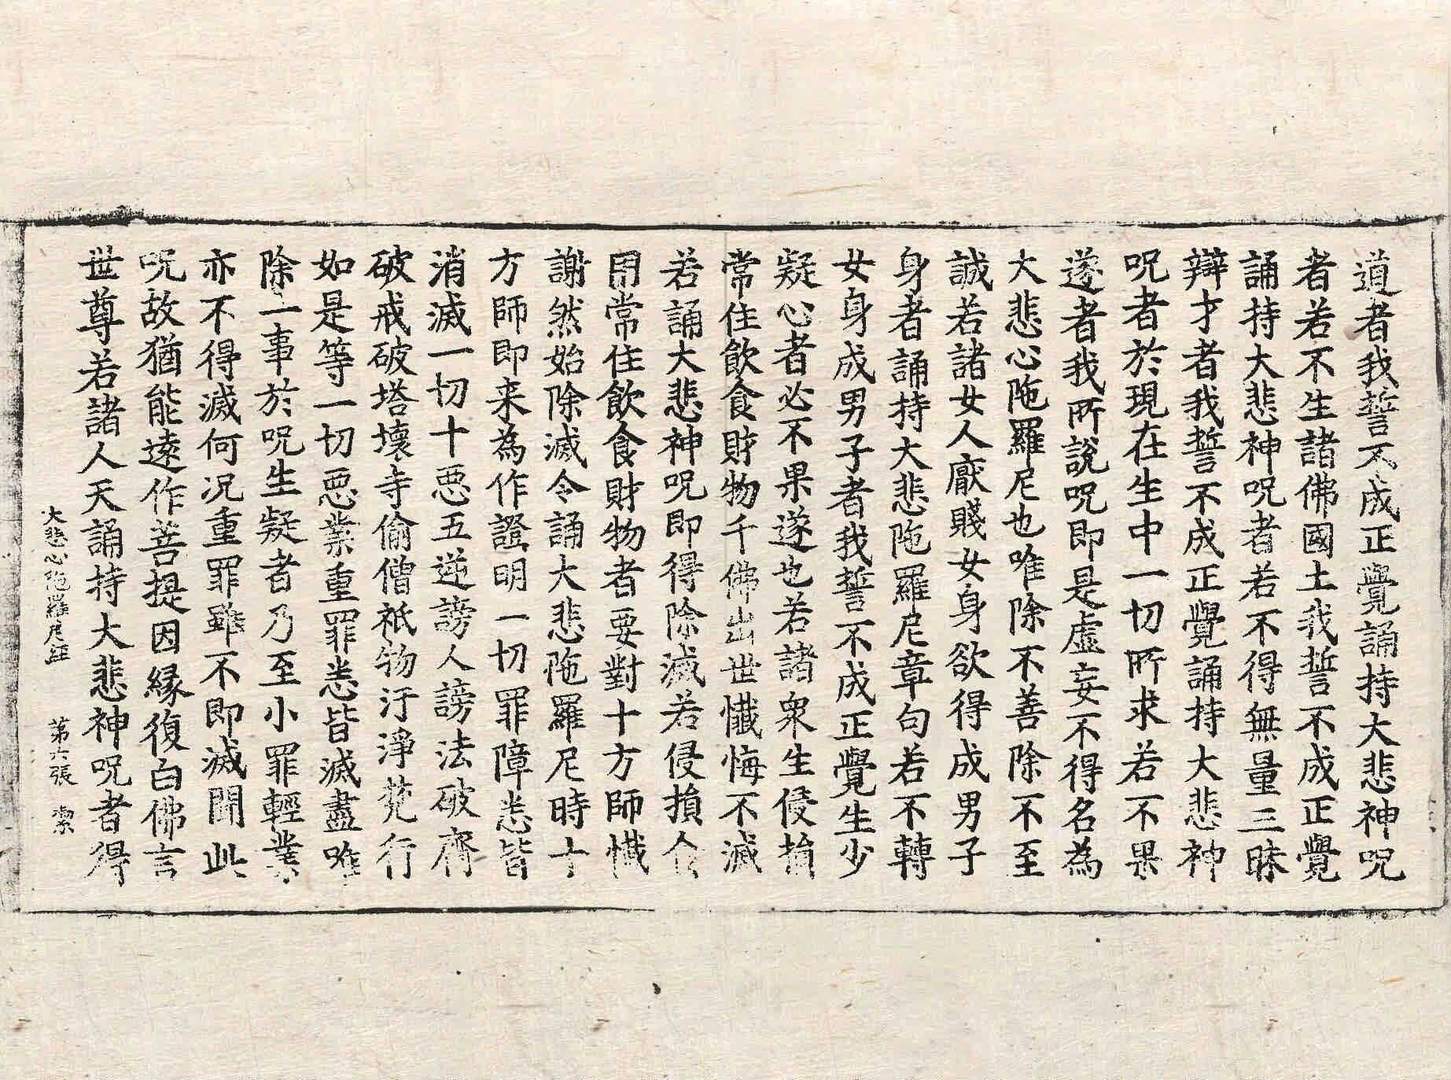 道者我誓不成正覺誦持大悲神呪
者若不生諸佛國土我誓不成正覺
誦持大悲神呪者若不得無量三昧
辯才者我誓不成正覺誦持大悲神
呪者於現在生中一切所求若不果
遂者我所說呪即是虛妄不得名為
大悲心陁羅尼也唯除不善除不至
誠若諸女人厭賤女身欲得成男子
身者誦持大悲陁羅尼章句若不轉
女身成男子者我誓不成正覺生少
疑心者必不果遂也若諸衆生侵損
常住飲食財物千佛出世懺悔不滅
若誦大悲神呪即得除滅若侵損食
用常住飲食財物者要對十方師懺
謝然始除滅令誦大悲陁羅尼時十
方師即来為作證明一切罪障悉皆
消滅一切十惡五逆謗人謗法破齋
破戒破塔壞寺偷僧祇物汙淨梵行
如是等一切惡業重罪悉皆滅盡唯
除一事於呪生疑者乃至小罪輕業
亦不得滅何况重罪雖不即滅聞此
呪故猶能遠作菩提因緣復白佛言
世尊若諸人天誦持大悲神呪者得
大悲心陁羅尼經 第六張